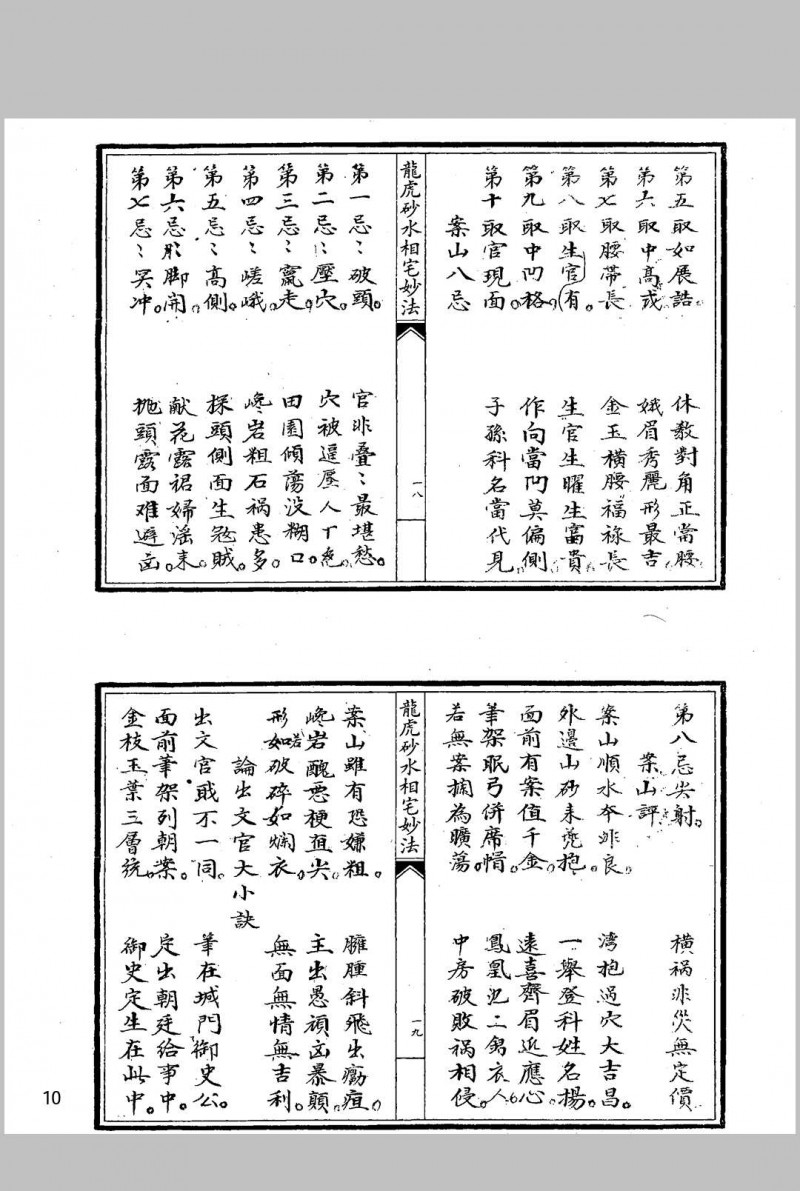 第五取如展誥。 休教對角正當腰
第六取中高或 娥眉秀麗形最吉
第七取腰帶長 金玉橫腰福祿長
第八取生官有。 生官生曜生富貴
第九取中凹格。 作向當凹莫偏側
第十取官現面 子孫科名當代見
案山八忌
龍虎砂水相宅妙法
一八
第一忌〻破頭。 官非叠〻最堪愁。
第二忌〻壓穴。 穴被逼壓人丁絶。
第三忌〻竄走。 田園傾蕩没糊口。
第四忌〻嵯峨。 巉岩粗石禍患多。
第五忌〻高側。 探頭側面生盜賊。
第六忌〻脚開。 献花露裙婦淫来。
第七忌〻冥冲。 抛頭露面难避凶。
第八忌尖射。 橫禍非災無定價
案山評
案山順水本非良 湾抱過穴大吉昌。
外邊山砂来兜抱。 一舉登科姓名揚。
面前有案值千金。 遠喜齊眉近應心。
筆架眠弓併席帽。 鳳凰池上錦衣人。
若無案攔為曠蕩。 中房破敗禍相侵。
龍虎砂水相宅妙法
一九
案山雖有恐嫌粗。 臃腫斜飛出癆疽。
巉岩醜惡梗直尖。 主出愚頑凶暴顛。
形如破碎若如爛衣。 無面無情無吉利。
論出文官大小訣
出文官職不一同。 筆在城門御史公。
面前筆架列朝案。 定出朝廷給事中。
金枝玉葉三層統。 御史定生在此中。
10